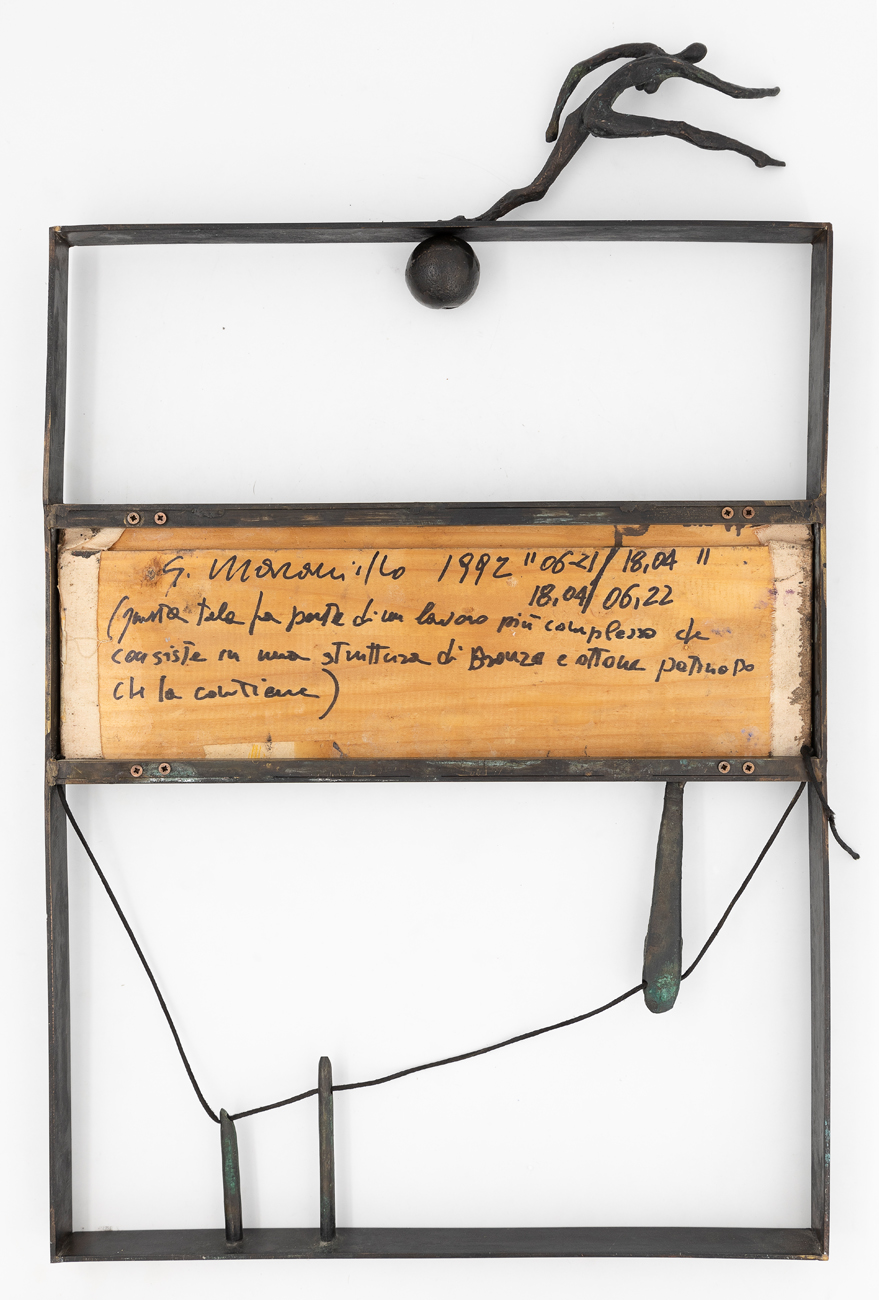 G. Maraniello 1992 "06-21/18,04"
18,04/06,22
(questa tela fa parte di un lavoro più complesso che
consiste in una struttura di Bronzo e ottone patinato
che la contiene)